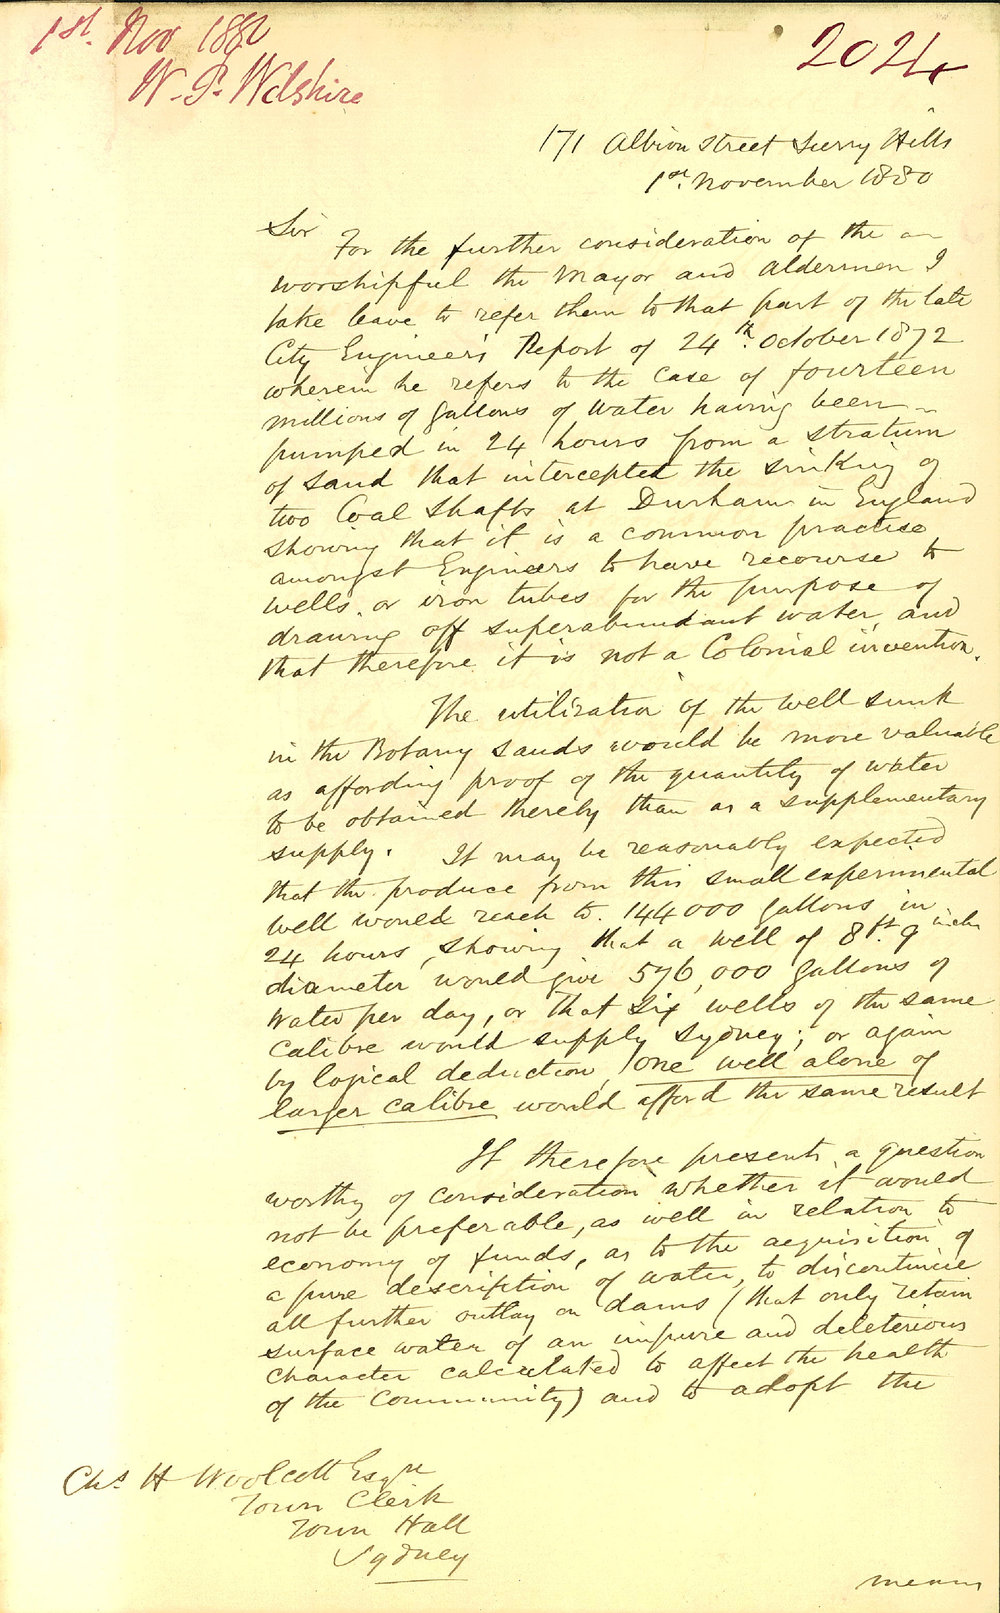 1st. Nov 1880
W. P. Wilshire
2024
171 Albion Street Surry Hills
1st. November 1880
Sir
For the further consideration of the
worshipful the Mayor and Aldermen I
take leave to refer them to that part of the late
City Engineer's Report of 24th. October 1872
wherein he refers to the case of fourteen
millions of gallons of water having been
pumped in 24 hours from a stratum
of sand that intercepted the sinking of
two Coal Shafts at Durham in England
showing that it is a common practise
amongst Engineers to have recourse to
wells, or iron tubes for the purpose of
drawing off superabundant water, and
that therefore it is not a Colonial invention.
The utilization of the well sunk
in the Botany sands would be more valuable
as affording proof of the quantity of water
to be obtained thereby than as a supplementary
supply. It may be reasonably expected
that the produce from this small experimental
well would reach to 144000 gallons in
24 hours, showing that a well of 8ft. 9 inches
diameter would give 576,000 gallons of
water per day, or that six wells of the same
calibre would supply Sydney; or again
by logical deduction, one well alone of
larger calibre would afford the same result
It therefore presents a question
worthy of consideration whether it would
not be preferable, as well in relation to
economy of funds, as to the acquisition of
a pure description of water, to discontinue
all further outlay on dams (that only retain
surface water of an impure and deleterious
character calculated to affect the health
of the Community) and to adopt the
Chs H Woolcott Esqre
Town Clerk
Town Hall
Sydney
means